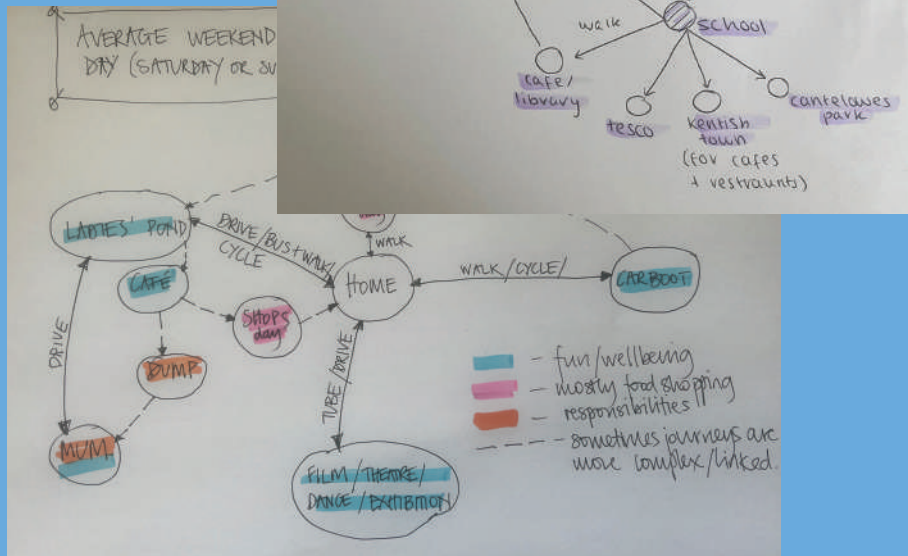 AVERAGE WEEKEND
DAY (SATURDAY OR SU
walk
school
cafe/
library
tesco
kentish
town
(for cafes
+ restraunts)
cantelowes
park
LADIES' POND
DRIVE/BUS+WALK/
CYCLE
WALK
HOME
WALK/CYCLE/
CARBOOT
CAFÉ
SHOPS
day
DRIVE
DUMP
TUBE/DRIVE
MUM
FILM/THEATRE/
DANCE/EXHIBITION
- fun/wellbeing
- mostly food shopping
- responsibilities
- sometimes journeys are
more complex/linked.